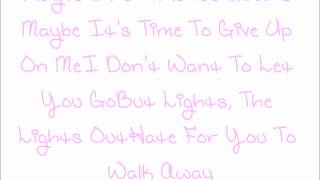 Maybe It's Time To Give Up
On MeI Don't Want To Let
You GoBut Lights, The
Lights OutHate For You To
Walk Away